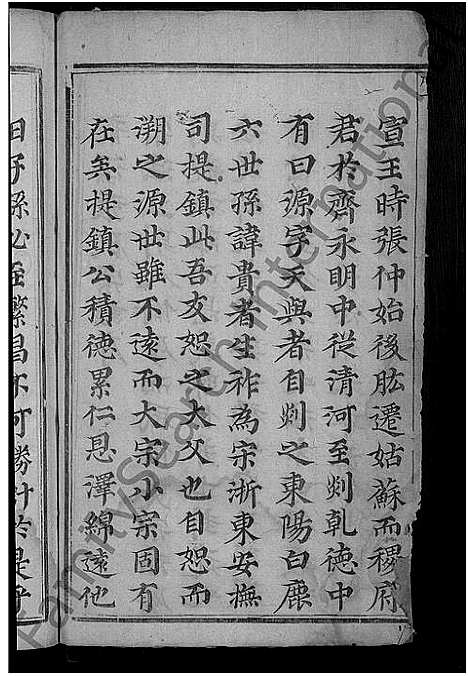 宣王時張仲始後肱遷姑蘇而稷府
君於齊永明中從清河至剡乾德中
有曰源字天與者自剡之東陽白鹿
六世孫諱貴者生祚為宗浙東安撫
司提鎮此吾友恕之大父也自恕而
溯之源世雖不遠而大宗小宗固有
在矣提鎮公積德累仁恩澤綿遠他
日子孫必至繁昌不可勝計於是乎
FamilySearch International